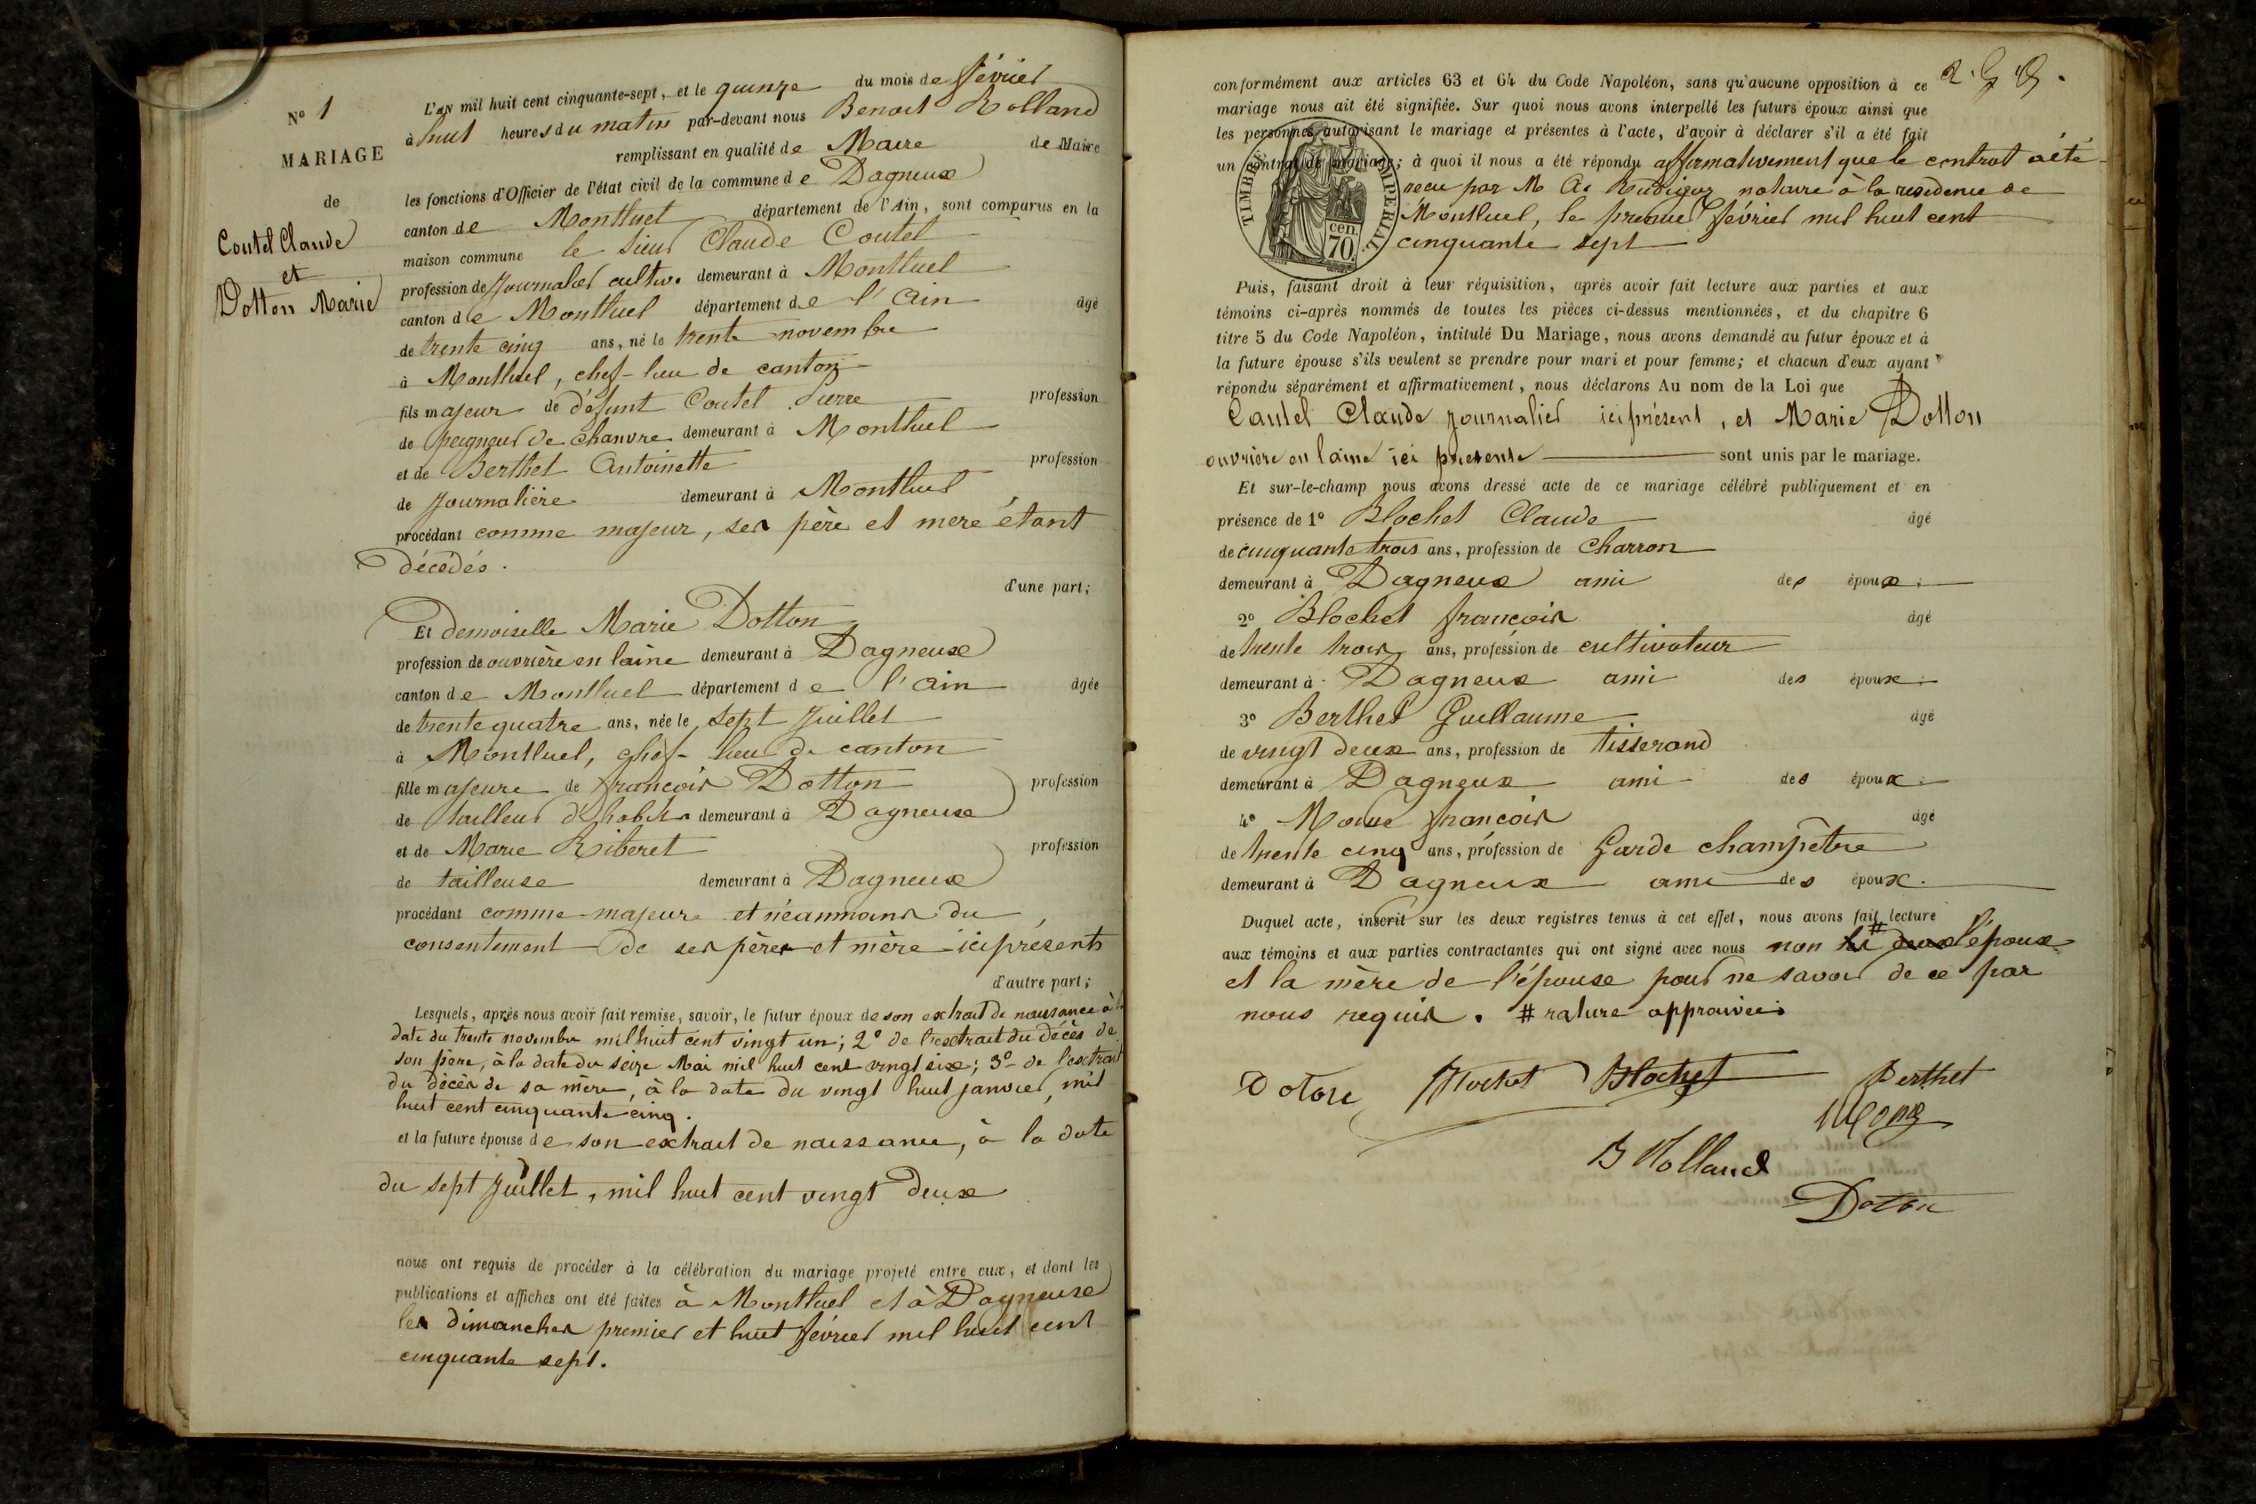 N° 1
MARIAGE
de
Coutel Claude
et
Dotton Marie
L'AN mil huit cent cinquante-sept, et le quinze du mois de février
à huit heures du matin par-devant nous Benoit Rolland
remplissant en qualité de Maire de Maire
les fonctions d'Officier de l'état civil de la commune de Dagneux
canton de Montluel département de l'Ain, sont comparus en la
maison commune le sieur Claude Coutel
profession de Journalier cultiv. demeurant à Montluel
canton de Montluel département de l'Ain âgé
de trente cinq ans, né le trente novembre
à Montluel, chef-lieu de canton
fils majeur de défunt Coutel Pierre profession
de peigneur de chanvre demeurant à Montluel
et de Berthet Antoinette profession
de Journalière demeurant à Montluel
procédant comme majeur, ses père et mère étant
décédés.
d'une part;
Et demoiselle Marie Dotton
profession de ouvrière en laine demeurant à Dagneux
canton de Montluel département de l'Ain âgée
de trente quatre ans, née le sept Juillet
à Montluel, chef-lieu de canton
fille majeure de françois Dotton profession
de tailleur d'habits demeurant à Dagneux
et de Marie Riberet profession
de tailleuse demeurant à Dagneux
procédant comme majeure et néanmoins du
consentement de ses père et mère ici présents
d'autre part;
Lesquels, après nous avoir fait remise, savoir, le futur époux de son extrait de naissance à la
date du trente novembre mil huit cent vingt un; 2° de l'extrait du décès de
son père, à la date du seize Mai mil huit cent vingt six; 3° de l'extrait
du décès de sa mère, à la date du vingt huit janvier, mil
huit cent cinquante cinq.
et la future épouse de son extrait de naissance, à la date
du sept Juillet, mil huit cent vingt deux
nous ont requis de procéder à la célébration du mariage projeté entre eux, et dont les
publications et affiches ont été faites à Montluel et à Dagneux
les dimanches premier et huit février mil huit cent
cinquante sept.
conformément aux articles 63 et 64 du Code Napoléon, sans qu'aucune opposition à ce
mariage nous ait été signifiée. Sur quoi nous avons interpellé les futurs époux ainsi que
les personnes autorisant le mariage et présentes à l'acte, d'avoir à déclarer s'il a été fait
un contrat de mariage; à quoi il nous a été répondu affirmativement que le contrat a été
reçu par M notaire à la résidence de
Montluel, le premier février mil huit cent
cinquante sept
TIMBRE IMPERIAL
cen.
70.
Puis, faisant droit à leur réquisition, après avoir fait lecture aux parties et aux
témoins ci-après nommés de toutes les pièces ci-dessus mentionnées, et du chapitre 6
titre 5 du Code Napoléon, intitulé Du Mariage, nous avons demandé au futur époux et à
la future épouse s'ils veulent se prendre pour mari et pour femme; et chacun d'eux ayant
répondu séparément et affirmativement, nous déclarons Au nom de la Loi que
Coutel Claude journalier ici présent, et Marie Dotton
ouvrière en laine ici présente sont unis par le mariage.
Et sur-le-champ nous avons dressé acte de ce mariage célébré publiquement et en
présence de 1° Blochet Claude âgé
de cinquante trois ans, profession de Charron
demeurant à Dagneux ami des époux;
2° Blochet françois âgé
de trente trois ans, profession de cultivateur
demeurant à Dagneux ami des époux;
3° Berthet Guillaume âgé
de vingt deux ans, profession de tisserand
demeurant à Dagneux ami des époux;
4° françois âgé
de trente cinq ans, profession de Garde champêtre
demeurant à Dagneux ami des époux.
Duquel acte, inscrit sur les deux registres tenus à cet effet, nous avons fait lecture
aux témoins et aux parties contractantes qui ont signé avec nous non # l'époux
et la mère de l'épouse pour ne savoir de ce par
nous requis. # rature approuvée
Doton Blochet Blochet Berthet
B Rolland
Doton